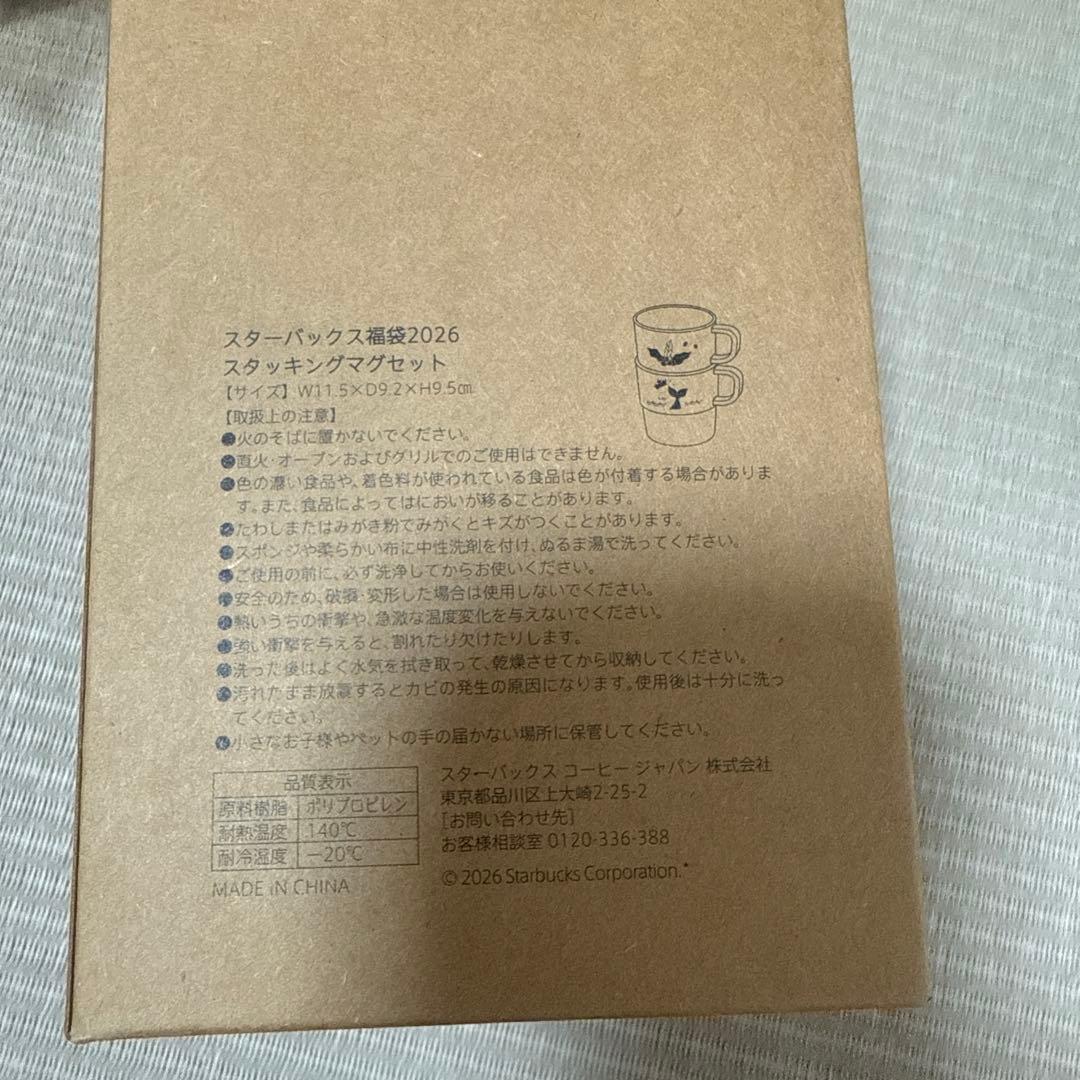 スターバックス福袋2026
スタッキングマグセット
【サイズ】W11.5×D9.2×H9.5㎝
【取扱上の注意】
●火のそばに置かないでください。
●直火・オーブンおよびグリルでのご使用はできません。
●色の濃い食品や、着色料が使われている食品は色が付着する場合がありま
す。また、食品によってはにおいが移ることがあります。
●たわしまたはみがき粉でみがくとキズがつくことがあります。
●スポンジや柔らかい布に中性洗剤を付け、ぬるま湯で洗ってください。
●ご使用の前に、必ず洗浄してからお使いください。
●安全のため、破損・変形した場合は使用しないでください。
●熱いうちの衝撃や、急激な温度変化を与えないでください。
●強い衝撃を与えると、割れたり欠けたりします。
●洗った後はよく水気を拭き取って、乾燥させてから収納してください。
●汚れたまま放置するとカビの発生の原因になります。使用後は十分に洗っ
てください。
●小さなお子様やペットの手の届かない場所に保管してください。
品質表示
原料樹脂 ポリプロピレン
耐熱温度 140℃
耐冷温度 －20℃
MADE IN CHINA
スターバックス コーヒー ジャパン 株式会社
東京都品川区上大崎2-25-2
［お問い合わせ先］
お客様相談室 0120-336-388
© 2026 Starbucks Corporation.*